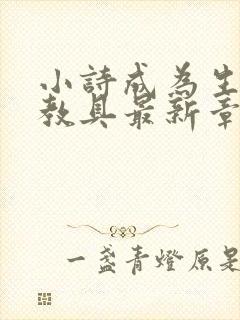 小詩成為生
教具最新章
一盞青燈原是